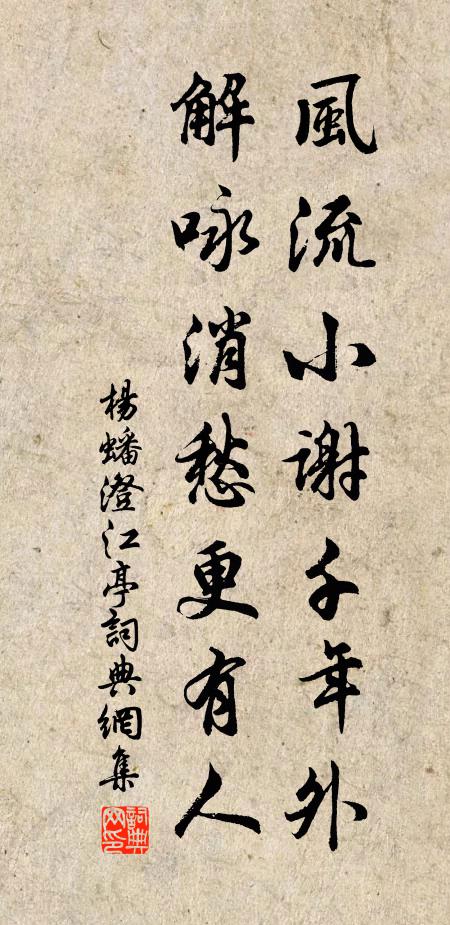 風流小謝千年外
解咏消愁更有人
楊蟠澄江亭詞典網集
詞典網印